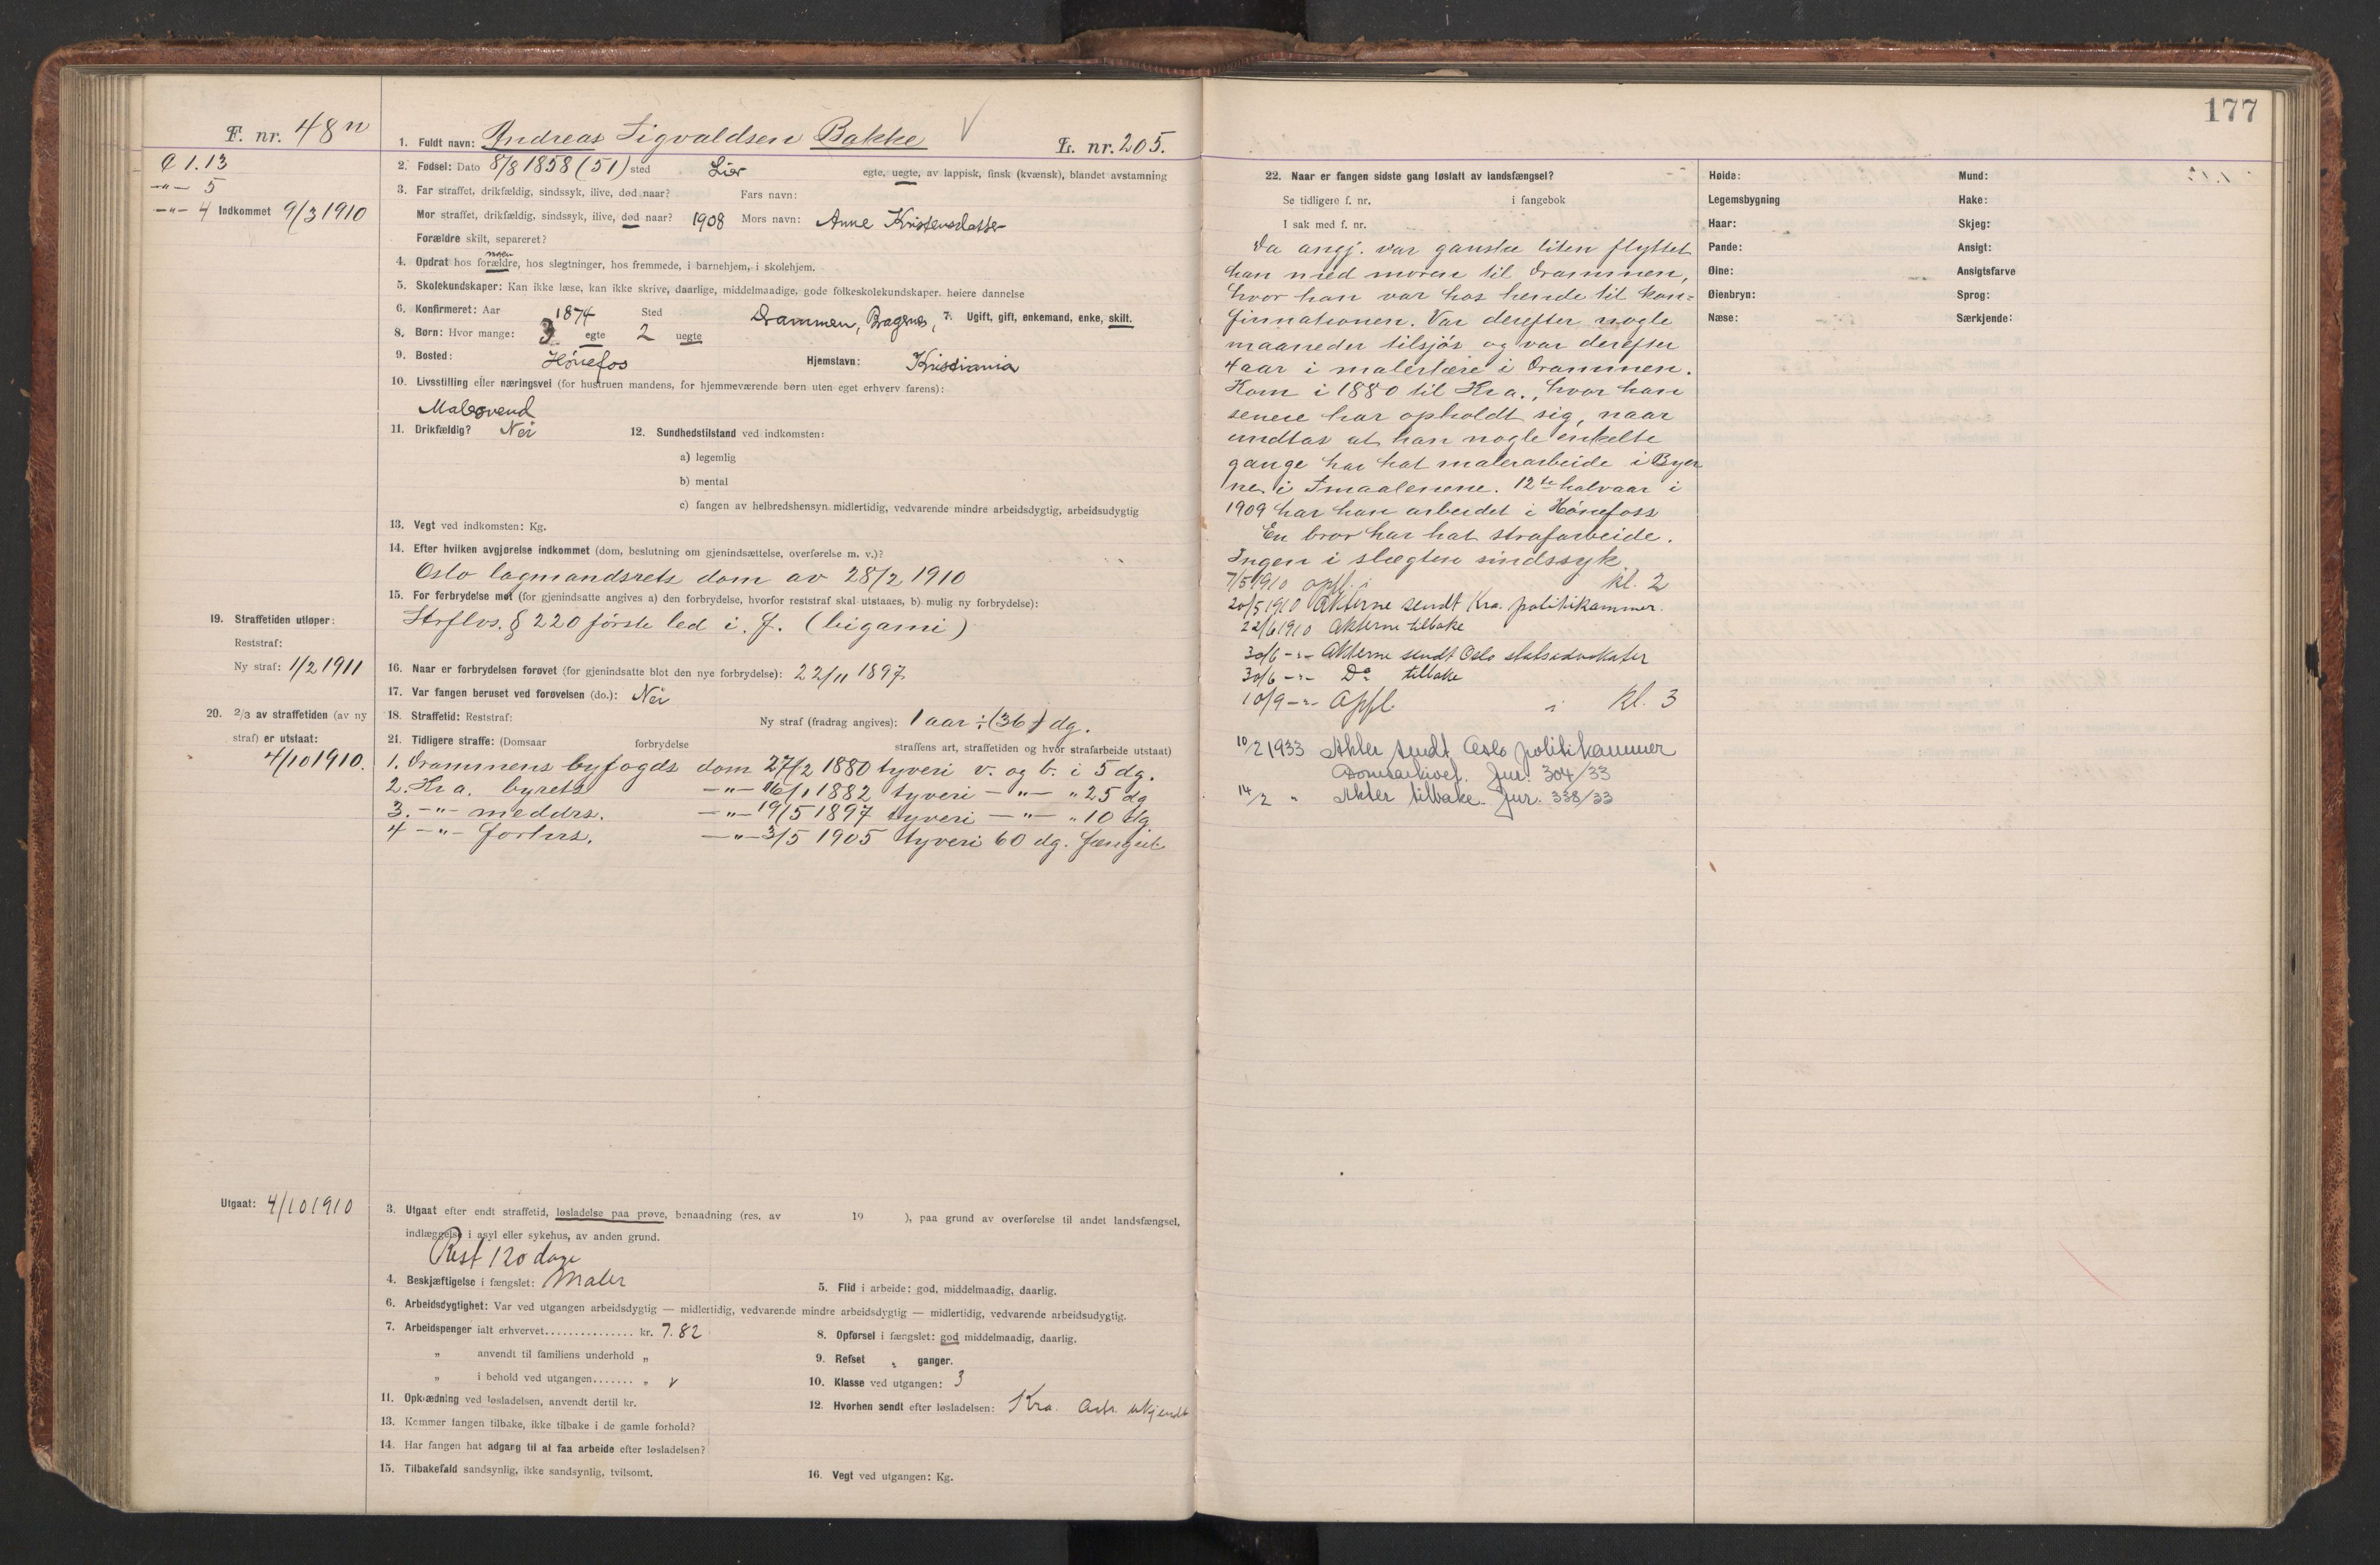 177
F. nr. 48n
1. Fuldt navn: Andreas Sigvaldsen Bakke V
L. nr. 205.
¢ 1.13
-"- 5
-"- 4 Indkommet 9/3 1910
2. Fødsel: Dato 8/8 1858 (51) sted Lier egte, uegte, av lappisk, finsk (kvænsk), blandet avstamning
3. Far straffet, drikfældig, sindssyk, ilive, død naar? Fars navn:
Mor straffet, drikfældig, sindssyk, ilive, død naar? 1908 Mors navn: Anne Kristensdatter
Forældre skilt, separeret?
moren
4. Opdrat hos forældre, hos slegtninger, hos fremmede, i barnehjem, i skolehjem.
5. Skolekundskaper: Kan ikke læse, kan ikke skrive, daarlige, middelmaadige, gode folkeskolekundskaper, høiere dannelse
6. Konfirmeret: Aar 1874 Sted Drammen, Bragernes, 7. Ugift, gift, enkemand, enke, skilt.
8. Børn: Hvor mange: 3 egte 2 uegte
9. Bosted: Hønefos Hjemstavn: Kristiania
10. Livsstilling eller næringsvei (for hustruen mandens, for hjemmeværende børn uten eget erhverv farens):
Malersvend
11. Drikfældig? Nei 12. Sundhedstilstand ved indkomsten:
a) legemlig
b) mental
c) fangen av helbredshensyn midlertidig, vedvarende mindre arbeidsdygtig, arbeidsudygtig
13. Vegt ved indkomsten: Kg.
14. Efter hvilken avgjørelse indkommet (dom, beslutning om gjenindsættelse, overførelse m. v.)?
Oslo lagmandsrets dom av 28/2 1910
15. For forbrydelse mot (for gjenindsatte angives a) den forbrydelse, hvorfor reststraf skal utstaaes, b) mulig ny forbrydelse):
Strflov. § 220 første led i. f. (bigami)
19. Straffetiden utløper:
Reststraf:
Ny straf: 1/2 1911
16. Naar er forbrydelsen forøvet (for gjenindsatte blot den nye forbrydelse): 22/11 1897
17. Var fangen beruset ved forøvelsen (do.): Nei
20. 2/3 av straffetiden (av ny
straf) er utstaat:
4/10 1910.
18. Straffetid: Reststraf: Ny straf (fradrag angives): 1 aar ÷ (36) dg.
21. Tidligere straffe: (Domsaar forbrydelse straffens art, straffetiden og hvor strafarbeide utstaat)
1. Drammens byfogds dom 27/2 1880 tyveri v. og b. i 5 dg.
2. Kra. byrets -"- 16/1 1882 tyveri -"- " 25 dg
3. -"- meddrs. -"- 19/5 1897 tyveri -"- " 10 dg
4 -"- forhrs. -"- 3/5 1905 tyveri 60 dg. fængsel
Utgaat: 4/10 1910
3. Utgaat efter endt straffetid, løsladelse paa prøve, benaadning (res. av 19 ), paa grund av overførelse til andet landsfængsel,
indlæggelse i asyl eller sykehus, av anden grund.
Rest 120 dage
4. Beskjæftigelse i fængslet: Maler 5. Flid i arbeide: god, middelmaadig, daarlig.
6. Arbeidsdygtighet: Var ved utgangen arbeidsdygtig — midlertidig, vedvarende mindre arbeidsdygtig — midlertidig, vedvarende arbeidsudygtig.
7. Arbeidspenger ialt erhvervet............... kr. 7.82 8. Opførsel i fængslet: god middelmaadig, daarlig.
„ anvendt til familiens underhold „ 9. Refset " ganger.
„ i behold ved utgangen....... „ v 10. Klasse ved utgangen: 3
11. Opklædning ved løsladelsen, anvendt dertil kr. 12. Hvorhen sendt efter løsladelsen: Kra. Adr. ukjendt
13. Kommer fangen tilbake, ikke tilbake i de gamle forhold?
14. Har fangen hat adgang til at faa arbeide efter løsladelsen?
15. Tilbakefald sandsynlig, ikke sandsynlig, tvilsomt. 16. Vegt ved utgangen: Kg.
22. Naar er fangen sidste gang løslatt av landsfængsel?
Se tidligere f. nr. i fangebok
I sak med f. nr.
Da angj. var ganske liten flyttet
han med moren til Drammen,
hvor han var hos hende til kon=
firmationen. Var derefter nogle
maaneder tilsjøs og var derefter
4 aar i malerlære i Drammen.
Kom i 1880 til Kra., hvor han
senere har opholdt sig, naar
undtas at han nogle enkelte
gange har hat malerarbeide i Byer
ne i Smaalenene. 12te halvaar i
1909 har han arbeidet i Hønefoss
En bror har hat strafarbeide.
Ingen i slegten sindssyk
7/5 1910 opfl. i kl. 2
20/5 1910 Akterne sendt Kra. politikammer.
22/6 1910 Akterne tilbake
30/6 -"- Akterne sendt Oslo statsadvokater
30/6 -"- Do tilbake
10/9 -"- Opfl. i kl. 3
10/2 1933 Akter sendt Oslo politikammer
Domsarkivet. Jur. 304/33
14/2 " Akter tilbake. Jur. 338/33
Høide: Mund:
Legemsbygning Hake:
Haar: Skjeg:
Pande: Ansigt:
Øine: Ansigtsfarve
Øienbryn: Sprog:
Næse: Særkjende: